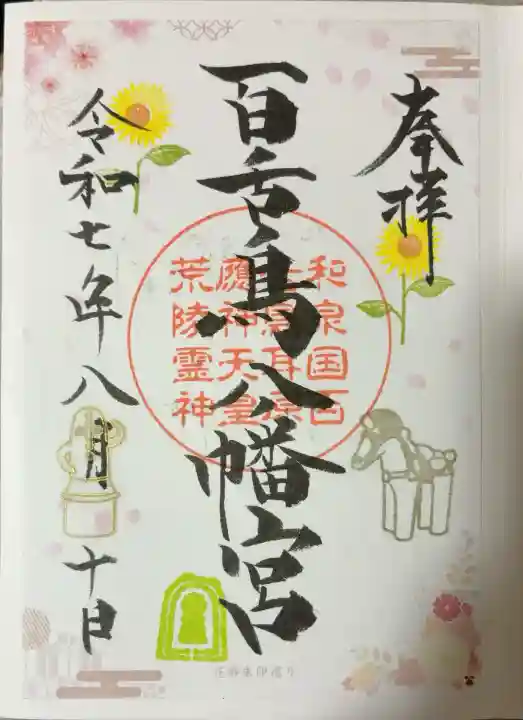 奉拝
百舌鳥八幡宮
令和七年八月十日
和泉国百
舌鳥耳原
應神天皇
荒陵霊神